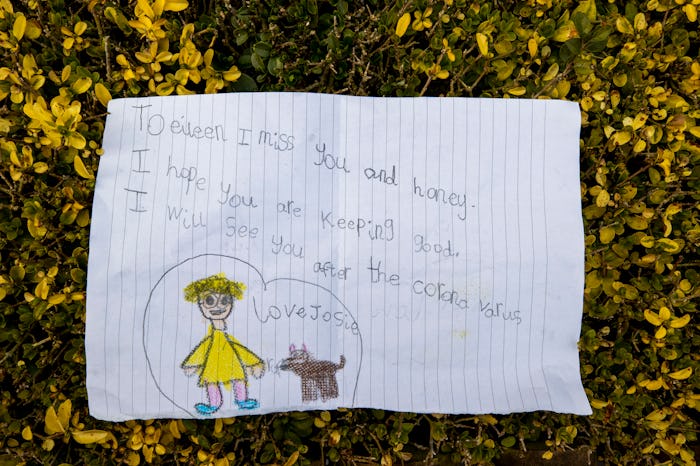 To eileen I miss you and honey.
I hope you are keeping good.
I will see you after the corona varus
love Josie